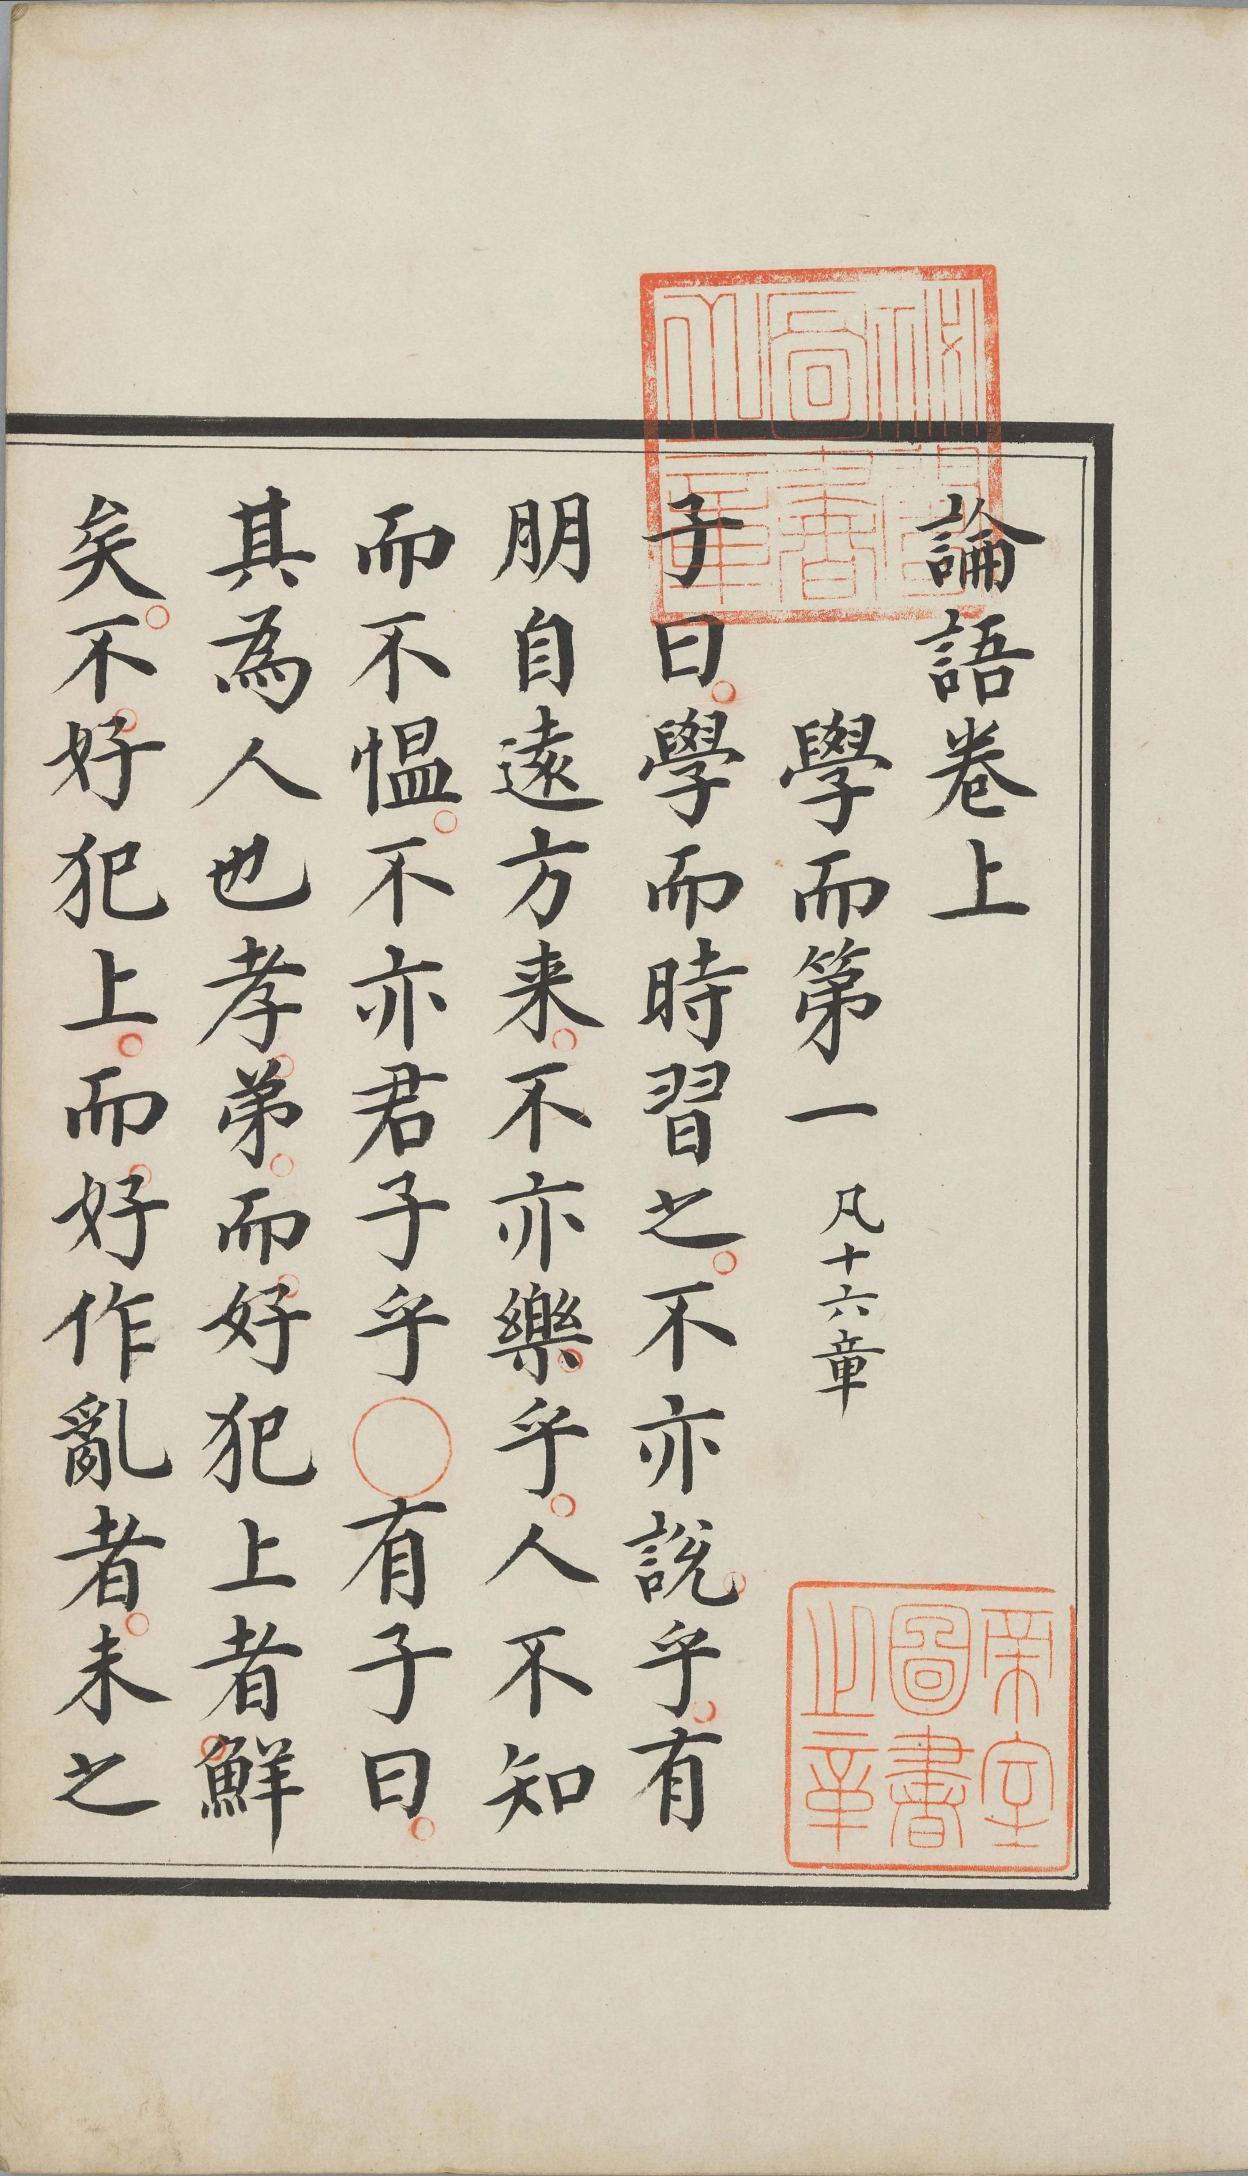 論語卷上
學而第一 凡十六章
子曰。學而時習之。不亦説乎。有
朋自遠方来。不亦樂乎。人不知
而不愠。不亦君子乎○有子曰。
其為人也孝弟。而好犯上者鮮
矣。不好犯上。而好作亂者。未之
秘閣圖書之章
帝室圖書之章